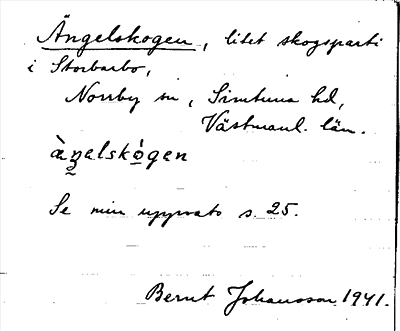 Ängelskogen, litet skogsparti
i Storbarbo,
Norrby sn, Simtuna hd,
Västmanl. län.
Se min uppsats s. 25.
Bernt Johansson 1941.